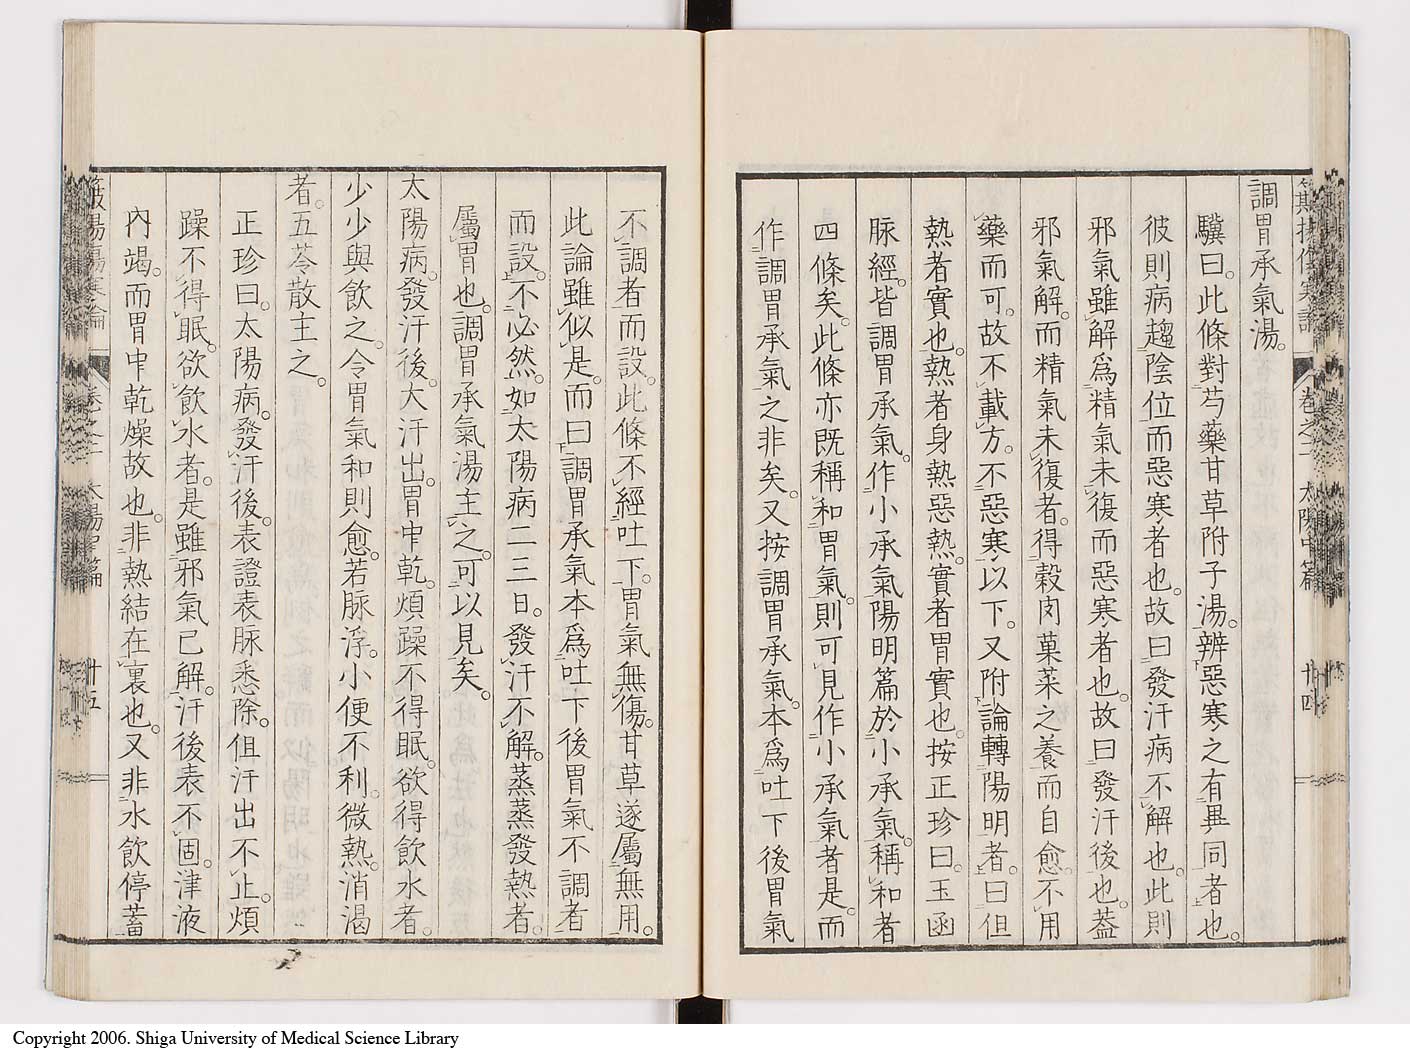 調胃承氣湯。
驥曰。此條對芍藥甘草附子湯。辨惡寒之有異同者也。
彼則病趨陰位而惡寒者也。故曰發汗病不解也。此則
邪氣雖解爲精氣未復而惡寒者也。故曰發汗後也。蓋
邪氣解。而精氣未復者。得穀肉菓菜之養而自愈。不用
藥而可。故不載方。不惡寒以下。又附論轉陽明者。曰但
熱者實也。熱者身熱惡熱。實者胃實也。按正珍曰。玉函
脉經。皆調胃承氣。作小承氣陽明篇於小承氣。稱和者
四條矣。此條亦既稱和胃氣。則可見作小承氣者是而
作調胃承氣之非矣。又按調胃承氣。本爲吐下後胃氣
不調者而設。此條不經吐下。胃氣無傷。甘草遂屬無用。
此論雖似是。而曰調胃承氣本爲吐下後胃氣不調者
而設。不必然。如太陽病二三日。發汗不解。蒸蒸發熱者。
屬胃也。調胃承氣湯主之。可以見矣。
太陽病。發汗後。大汗出。胃中乾。煩躁不得眠。欲得飲水者。
少少與飲之。令胃氣和則愈。若脉浮。小便不利。微熱。消渴
者。五苓散主之。
正珍曰。太陽病。發汗後。表證表脉悉除。但汗出不止。煩
躁不得眠。欲飲水者。是雖邪氣已解。汗後表不固。津液
內竭。而胃中乾燥故也。非熱結在裏也。又非水飲停蓄
卷之二 太陽中篇
廿四
廿五
Copyright 2006. Shiga University of Medical Science Library